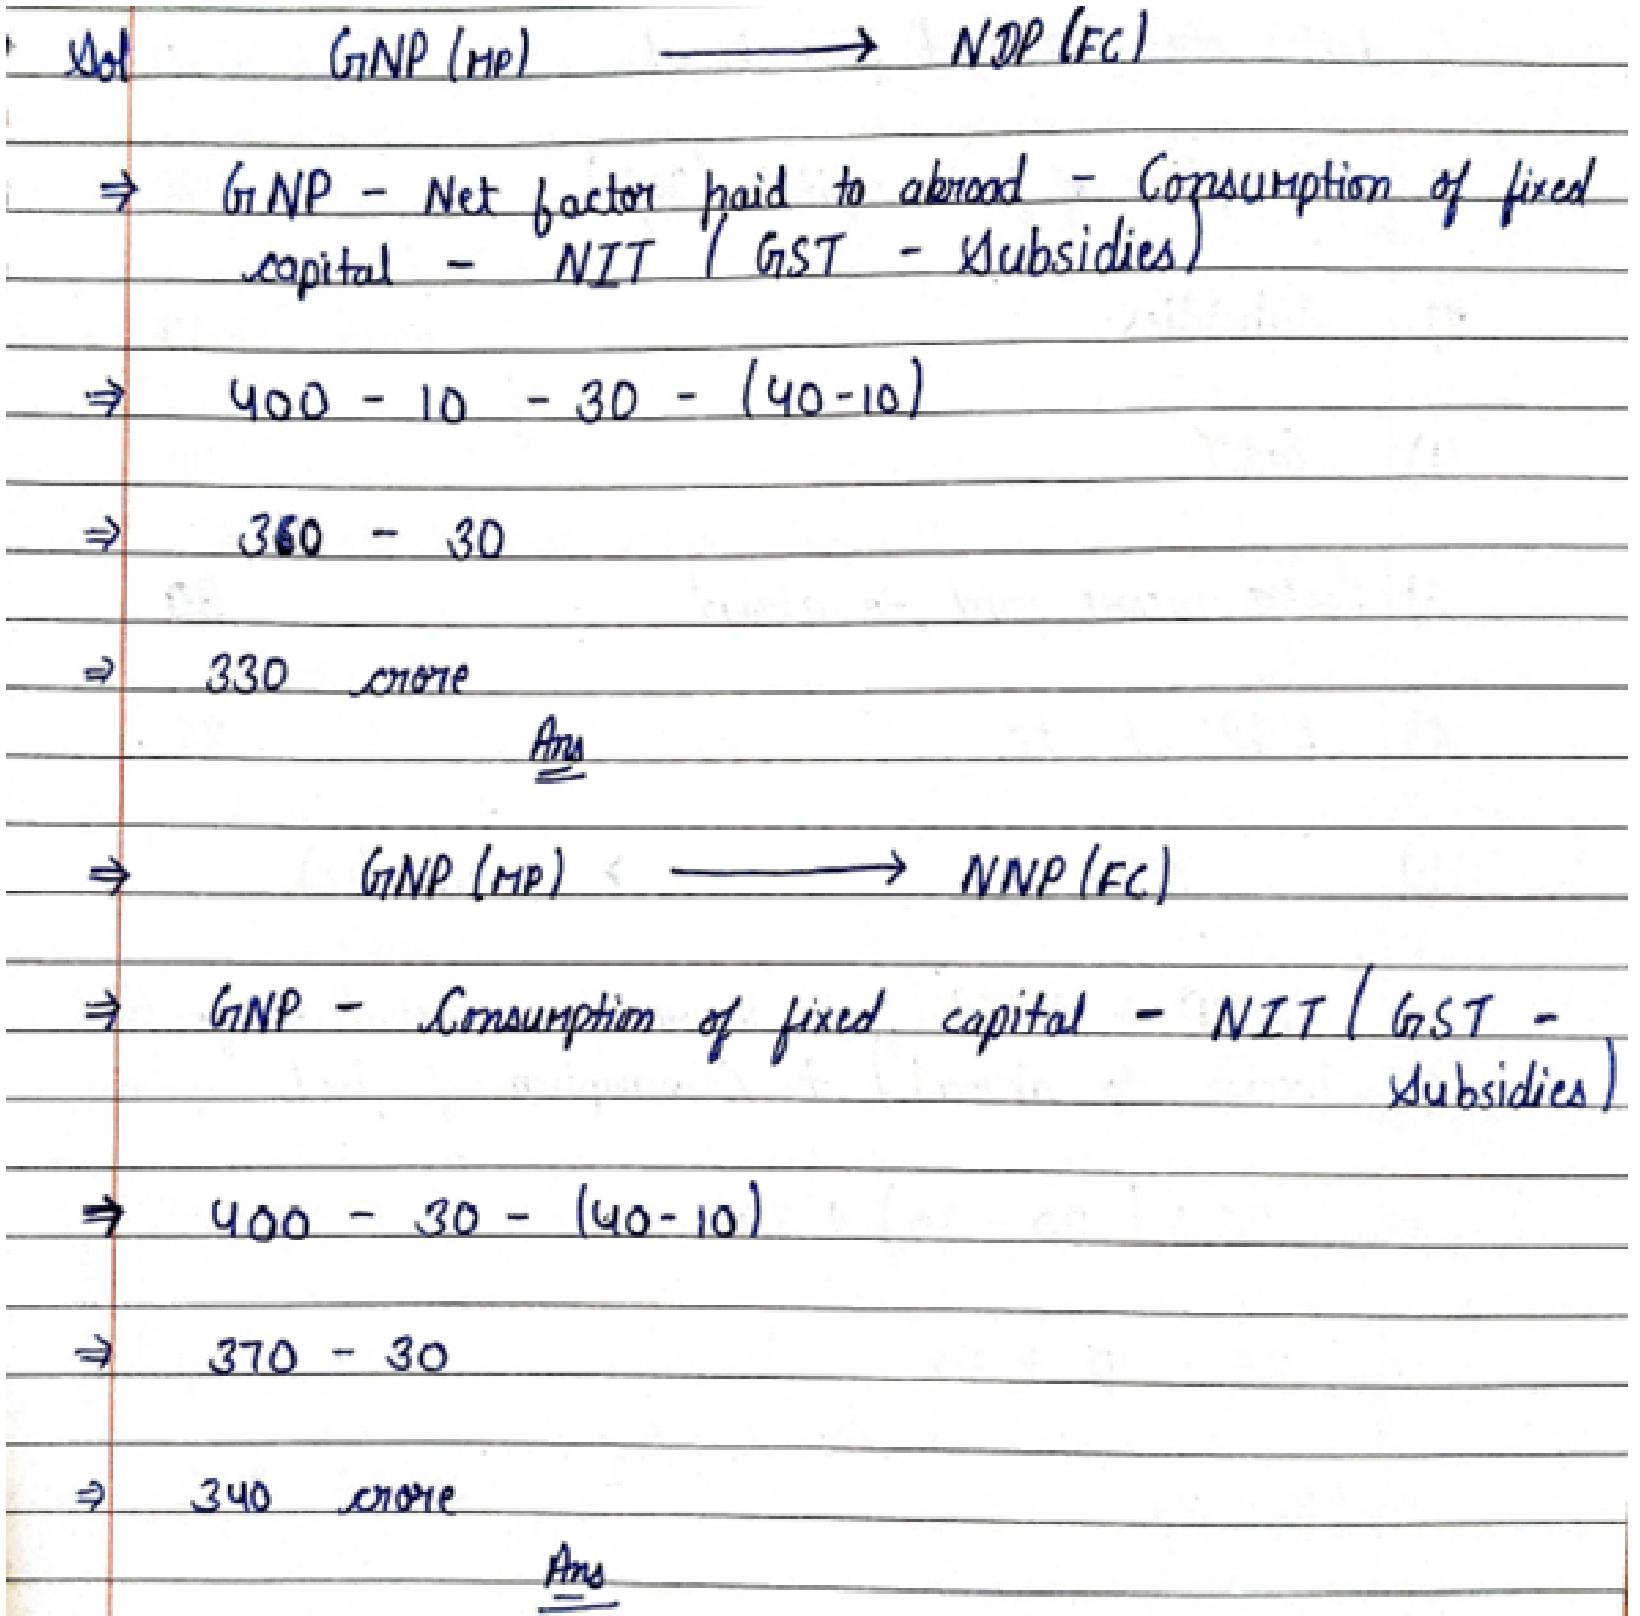 Sol GNP (MP) → NDP (FC)
⇒ GNP - Net factor paid to abroad - Consumption of fixed
capital - NIT (GST - Subsidies)
⇒ 400 - 10 - 30 - (40-10)
⇒ 360 - 30
⇒ 330 crore
Ans
⇒ GNP (MP) → NNP (FC)
⇒ GNP - Consumption of fixed capital - NIT (GST -
Subsidies)
⇒ 400 - 30 - (40-10)
⇒ 370 - 30
⇒ 340 crore
Ans